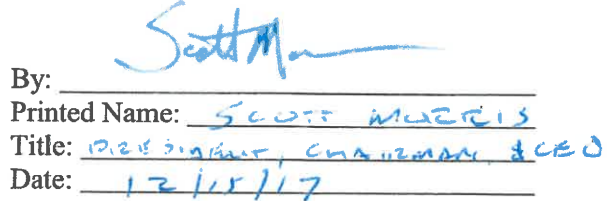 By: Scott Mo
Printed Name: SCOTT MORRIS
Title: PRESIDENT, CHAIRMAN & CEO
Date: 12/15/17